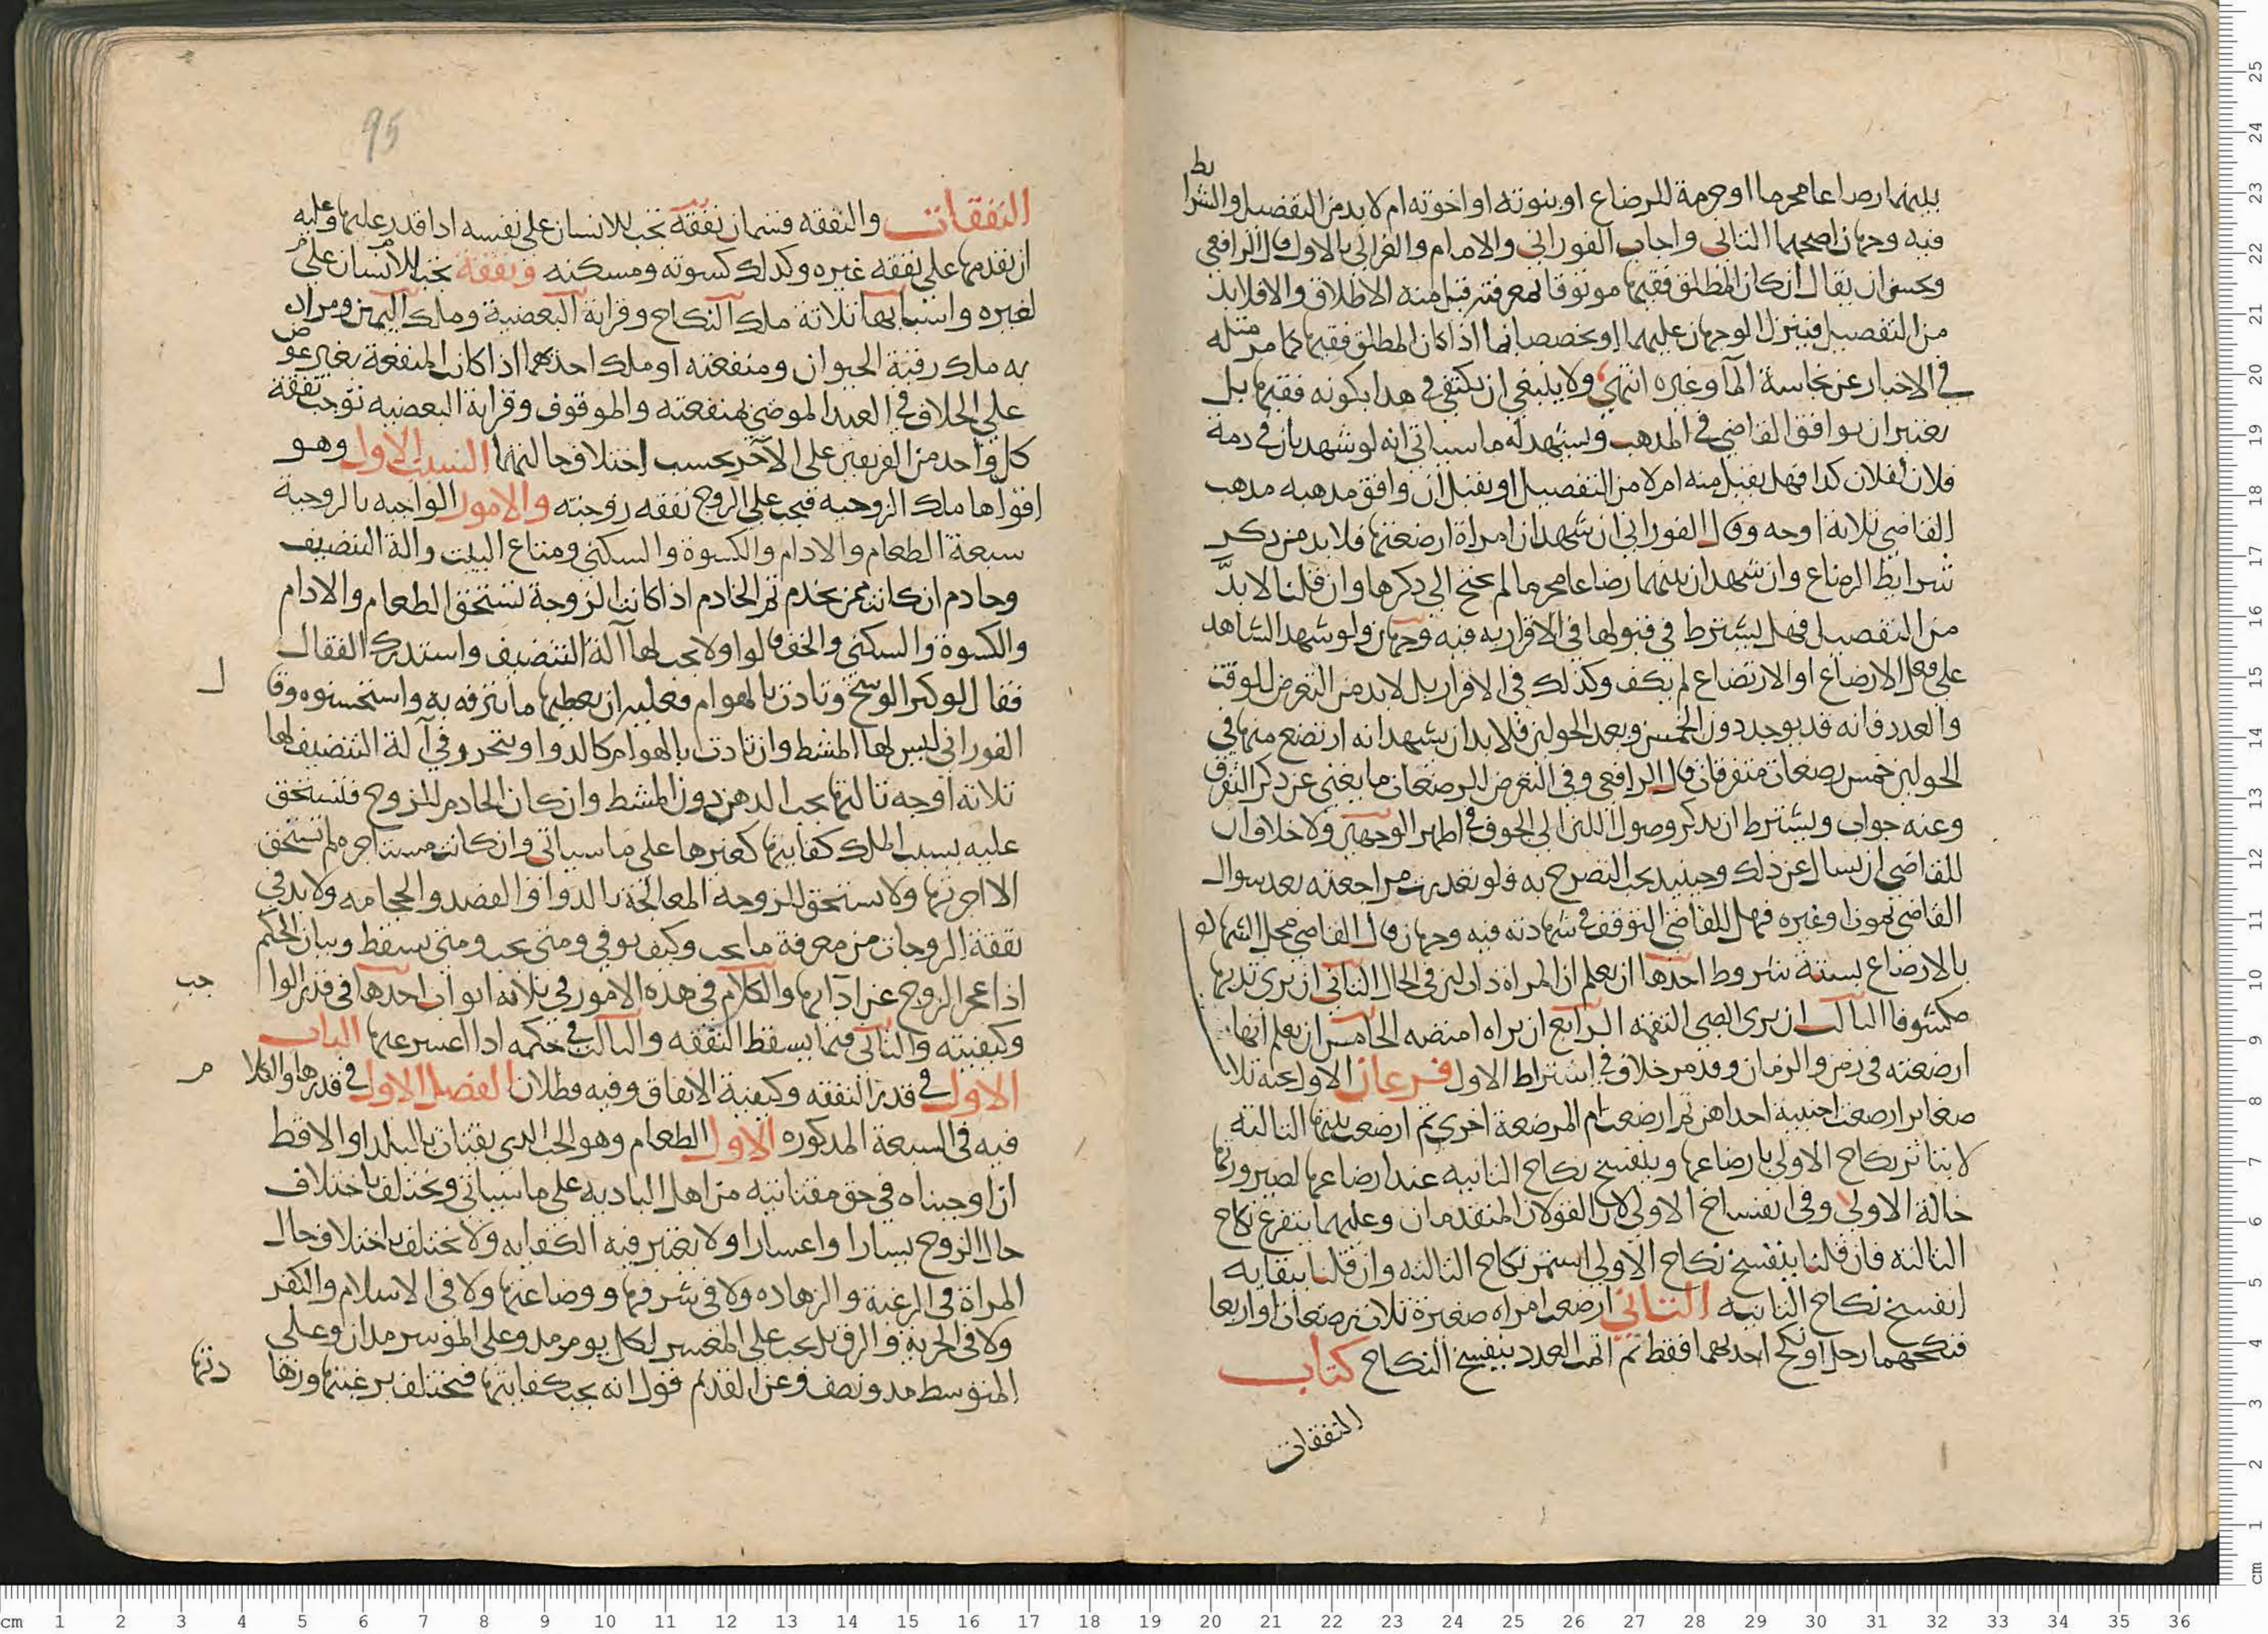 بينهما رضاعا محرما او حرمة الرضاع او بنوته او اخوته ام لا بد من التفصيل والشرايط
فيه وجهان اصحهما الثاني واجاب الفوراني والامام والغزالي بالاول قال الرافعي
ويحسن ان يقال ان كان المطلق فقيها موثوقا بمعرفته قبل منه الاطلاق والا فلا بد
من التفصيل فينزل الوجهان عليهما او يخصصا بما اذا كان المطلق فقيها كما مر مثله
في الاخبار عن نجاسة الماء وغيره انتهي ولا ينبغي ان يكتفي في هذا بكونه فقيها بل
يعتبر ان يوافق القاضي في المذهب ويشهد له ما سياتي انه لو شهد بان في ذمة
فلان لفلان كذا فهل يقبل منه ام لا من التفصيل او يقبل ان وافق مذهبه مذهب
القاضي ثلاثة اوجه وقال الفوراني ان شهد ان امراة ارضعتها فلا بد من ذكر
شرايط الرضاع وان شهد ان بينهما رضاعا محرما لم يحتج الى ذكرها وان قلنا لا بد
من التفصيل فهل يشترط في قبولها في الاقرار به فيه وجهان ولو شهد الشاهد
على فعل الارضاع او الارتضاع لم يكف وكذلك في الاقرار بل لا بد من التعرض للوقت
والعدد فانه قد يوجد دون الخمس وبعد الحولين فلا بد ان يشهد انه ارتضع منها في
الحولين خمس رضعات متفرقات قال الرافعي وفي التعرض للرضعات ما يغني عن ذكر التفرق
وعنه جواب ويشترط ان يذكر وصول اللبن الى الجوف في اظهر الوجهين ولا خلاف ان
للقاضي ان يسال عن ذلك وحينيذ يجب التصريح به فلو تعذرت مراجعته بعد سوال
القاضي بموت او غيره فهل للقاضي التوقف في شهادته فيه وجهان قال القاضي محل الشهادة
بالارضاع بستة شروط احدها ان يعلم ان المراة ذات لبن في الحال الثاني ان يرى ثديها
مكشوفا الثالث ان يرى الصبي التقمه الرابع ان يراه امتصه الخامس ان يعلم انها
ارضعته في زمن والزمان وقد مر خلاف في اشتراط الاول فرعان الاول تحته ثلاث
صغاير ارضعت اجنبية احداهن ثم ارضعت ام المرضعة اخرى ثم ارضعت بنتها الثالثة
لا يتاثر نكاح الاولي بارضاعها وينفسخ نكاح الثانيه عند ارضاعها لصيرورتها
خالة الاولى وفي انفساخ الاولي القولان المتقدمان وعليهما يتفرع نكاح
الثالثة فان قلنا ينفسخ نكاح الاولي استمر نكاح الثالثه وان قلنا ببقايه
انفسخ نكاح الثانيه الثاني ارضعت امراه صغيرة ثلاث رضعات او اربعا
فنكحهما رجل او نكح احديهما فقط ثم اتمت العدد ينفسخ النكاح كتاب
النفقات
95
النفقات والنفقه قسمان نفقة تجب للانسان على نفسه اذا قدر عليها وعليه
ان يقدمها على نفقه غيره وكذلك كسوته ومسكنه ونفقة تجب للانسان على
لغيره واسبابها ثلاثة ملك النكاح وقرابة البعضية وملك اليمين ومراد
به ملك رقبة الحيوان ومنفعته او ملك احدهما اذا كانت المنفعة بغير عوض
على الخلاف في العبد الموصى بمنفعته والموقوف وقرابة البعضيه توجب نفقة
كل واحد من الفريقين على الآخر بحسب اختلاف حالتهما السبب الاول وهو
اقواها ملك الزوجيه فيجب على الزوج نفقه زوجته والامور الواجبه بالزوجية
سبعة الطعام والادام والكسوة والسكنى ومتاع البيت والة التنضيف
وخادم ان كانت ممن يخدم ثم الخادم اذا كانت الزوجة تستحق الطعام والادام
والكسوة والسكنى والخف قالوا ولا يجب لها آلة التنضيف واستدرك القفال
فقال لو كثر الوسخ وتاذت بالهوام فعليه ان يعطيها ما تترفه به واستحسنوه وقال
الفوراني ليس لها المشط وان تاذت بالهوام كالدواء ويتحرر في آلة التنضيف لها
ثلاثة اوجه ثالثها يجب الدهن دون المشط وان كان الخادم للزوج فتستحق
عليه بسبب الملك كفايتها كغيرها على ما سياتي وان كانت مستاجره لم تستحق
الا اجرتها ولا تستحق الزوجة المعالجة بالدوا والفصد والحجامه ولا بد في
نفقة الزوجات من معرفة ما يجب وكيف يوفي ومتى يجب ومتى يسقط وبيان الحكم
اذا عجز الزوج عن ادايها والكلام في هذه الامور في ثلاثه ابواب احدها في قدر الواجب
وكيفيته والثاني فيما يسقط النفقه والثالث في حكمه اذا اعسر عنها الباب
الاول في قدر النفقه وكيفية الانفاق وفيه فصلان الفصل الاول في قدرها والكلام
فيه في السبعة المذكوره الاول الطعام وهو الحب الذي يقتات بالبلد او الاقط
ان اوجبناه في حق مقتاتيه من اهل الباديه على ما سياتي ويختلف باختلاف
حال الزوج يسارا واعسارا ولا يعتبر فيه الكفايه ولا يختلف باختلاف حال
المراة في الرغبة والزهاده ولا في شرفها ووضاعتها ولا في الاسلام والكفر
ولا في الحرية والرق بل يجب على المعسر لكل يوم مد وعلى الموسر مدان وعلى
المتوسط مد ونصف وعن القديم قول انه يجب كفايتها فيختلف برغبتها وزهادتها